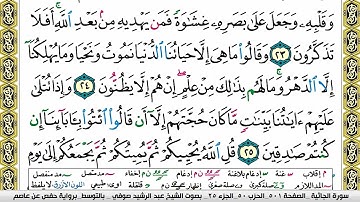 وَقَلْبِهِۦ وَجَعَلَ عَلَىٰ بَصَرِهِۦ غِشَٰوَةً فَمَن يَهْدِيهِ مِنۢ بَعْدِ ٱللَّهِ أَفَلَا
تَذَكَّرُونَ ٢٣ وَقَالُوا۟ مَا هِىَ إِلَّا حَيَاتُنَا ٱلدُّنْيَا نَمُوتُ وَنَحْيَا وَمَا يُهْلِكُنَآ
إِلَّا ٱلدَّهْرُ وَمَا لَهُم بِذَٰلِكَ مِنْ عِلْمٍ إِنْ هُمْ إِلَّا يَظُنُّونَ ٢٤ وَإِذَا تُتْلَىٰ
عَلَيْهِمْ ءَايَٰتُنَا بَيِّنَٰتٍ مَّا كَانَ حُجَّتَهُمْ إِلَّآ أَن قَالُوا۟ ٱئْتُوا۟ بِـَٔابَآئِنَآ إِن
كُنتُمْ صَٰدِقِينَ ٢٥ قُلِ ٱللَّهُ يُحْيِيكُمْ ثُمَّ يُمِيتُكُمْ ثُمَّ يَجْمَعُكُمْ إِلَىٰ يَوْمِ
سورة الجاثية - الصفحة ٥٠١ - الحزب ٥٠ - الجزء ٢٥ بصوت الشيخ عبد الرشيد صوفي - بالتوسط برواية حفص عن عاصم